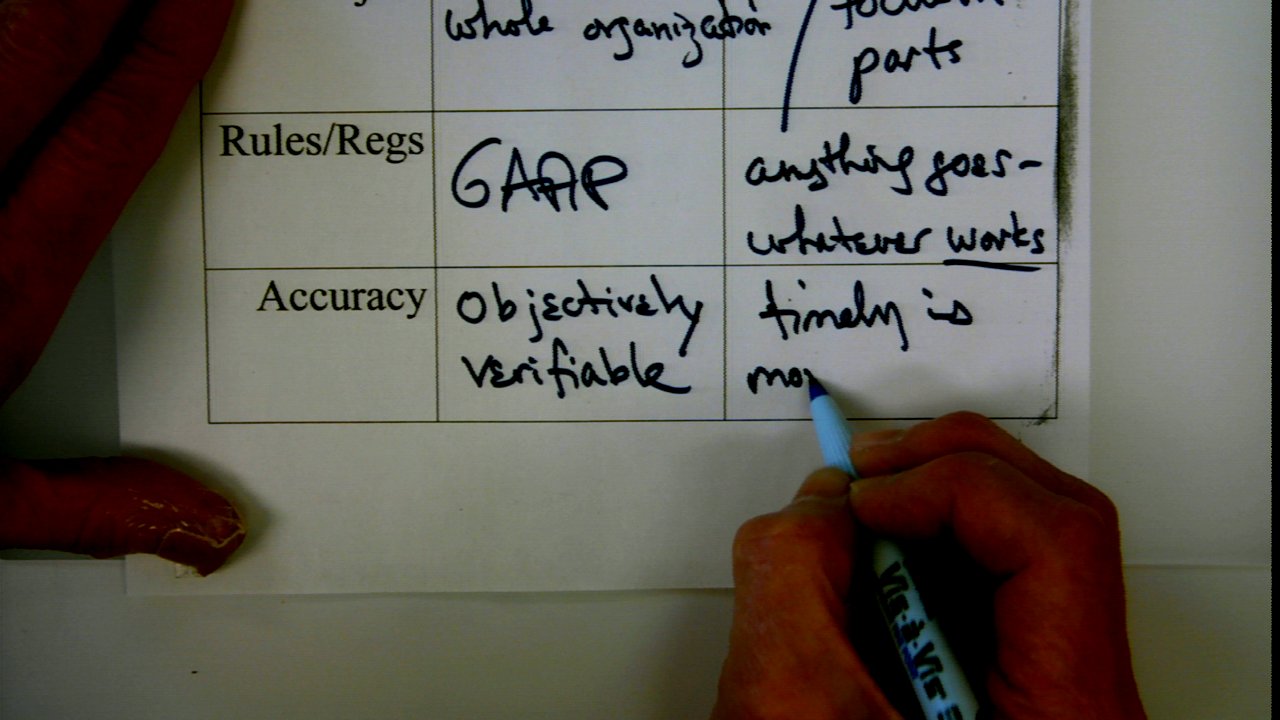 whole organization
parts
Rules/Regs
GAAP
anything goes-
whatever works
Accuracy
Objectively
verifiable
timely is
mo
VIS-à-VIS